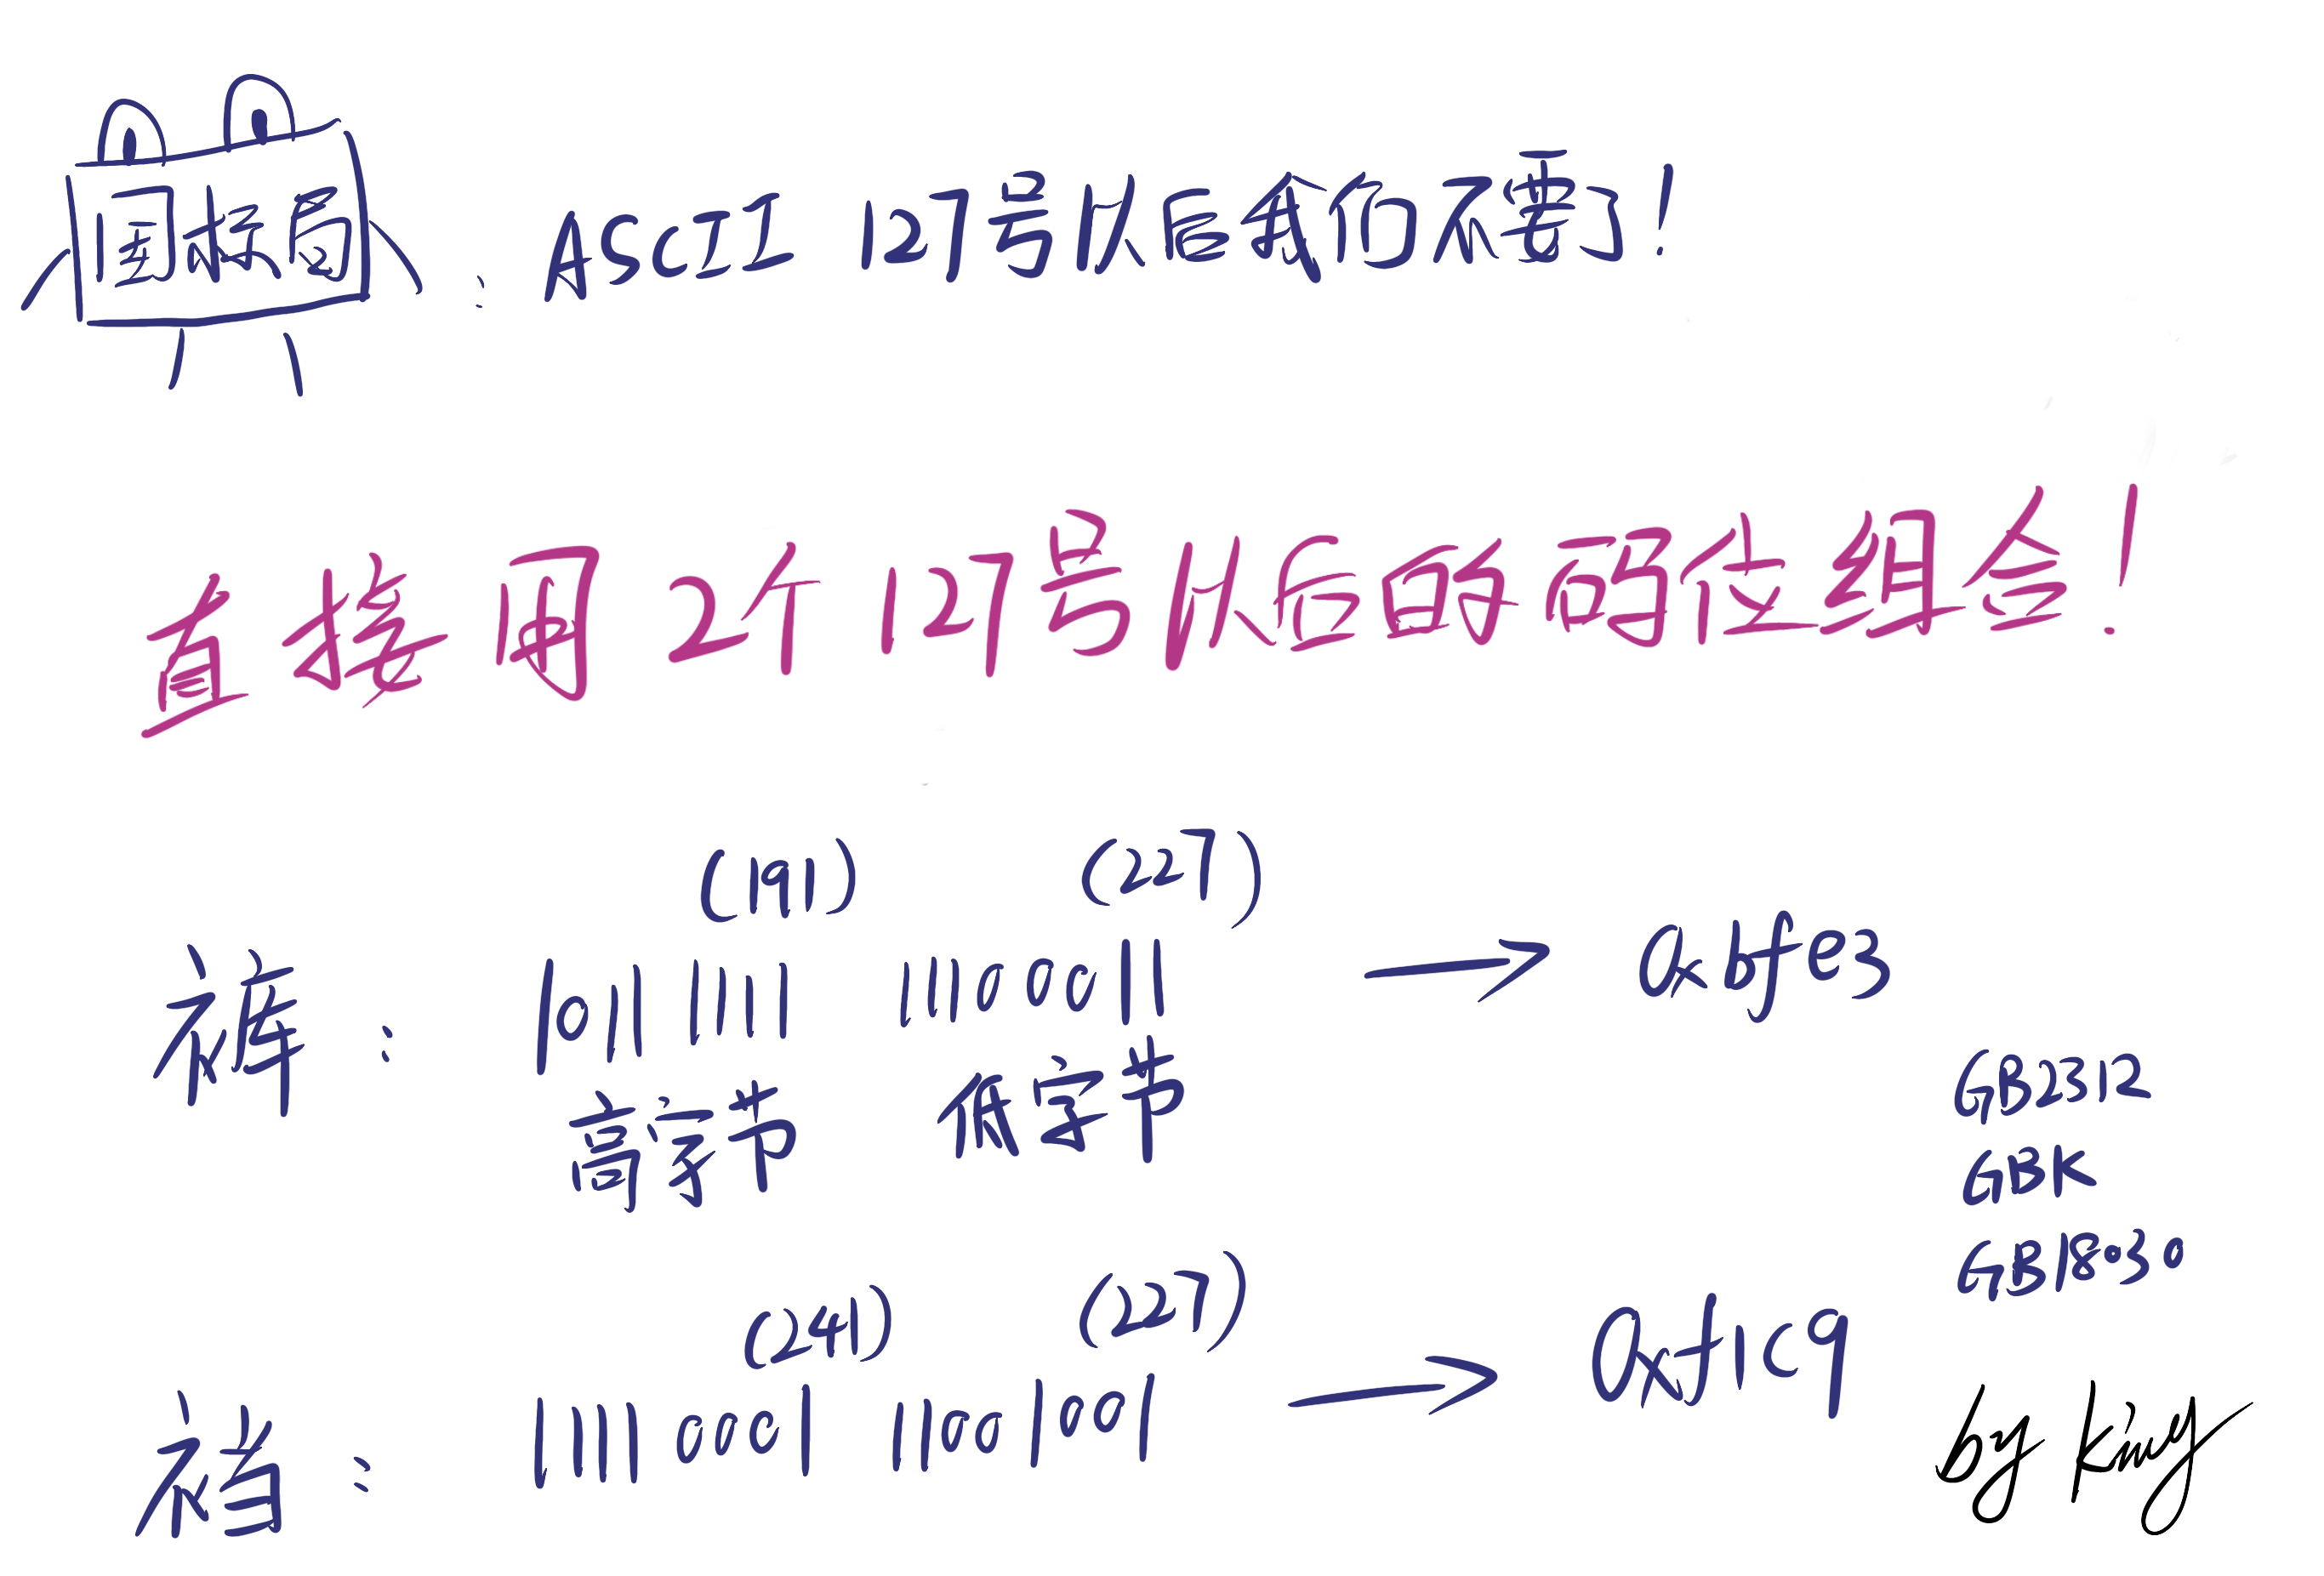 国标局 : ASCII 127号以后我们不要了!
直接用2个127号以后的码位组合!
(191) (227)
裤 : 10111111 11100011 → 0xbfe3
高字节 低字节
GB2312
GBK
GB18030
(241) (227)
裆 : 11110001 11001001 → 0xf1c9
by King